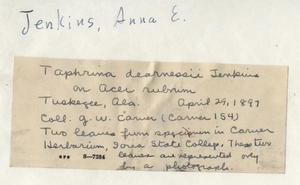 Jenkins, Anna E.
Taphrina dearnessii Jenkins
on Acer rubrum
Tuskegee, Ala. April 29, 1897
Coll. G. W. Carver (Carver 154)
Two leaves from specimen in Carver
Herbarium, Iowa State College. These two
leaves are represented only
8—7234
by a photograph.